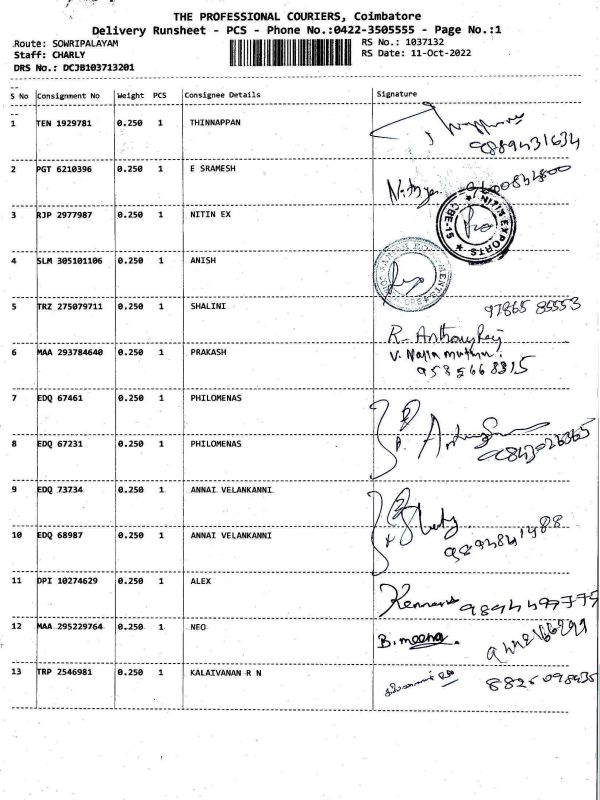 THE PROFESSIONAL COURIERS, Coimbatore
Delivery Runsheet - PCS - Phone No.:0422-3505555 - Page No.:1
Route: SOWRIPALAYAM RS No.: 1037132
Staff: CHARLY RS Date: 11-Oct-2022
DRS No.: DCJB103713201
S No Consignment No Weight PCS Consignee Details Signature
1 TEN 1929781 0.250 1 THINNAPPAN
9889431634
2 PGT 6210396 0.250 1 E SRAMESH
Nithya
3 RJP 2977987 0.250 1 NITIN EX NITIN EXPORTS CBE-15
4 SLM 305101106 0.250 1 ANISH
5 TRZ 275079711 0.250 1 SHALINI 97865 85553
R. Anthony Raj
6 MAA 293784640 0.250 1 PRAKASH V. Nalla muthu.
9585668315
7 EDQ 67461 0.250 1 PHILOMENAS
8 EDQ 67231 0.250 1 PHILOMENAS 9843026365
9 EDQ 73734 0.250 1 ANNAI VELANKANNI
10 EDQ 68987 0.250 1 ANNAI VELANKANNI 9894841488
11 DPI 10274629 0.250 1 ALEX
12 MAA 295229764 0.250 1 NEO B. meena.
13 TRP 2546981 0.250 1 KALAIVANAN R N